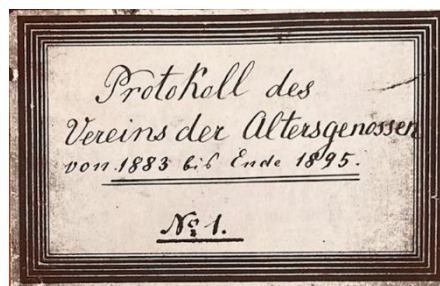 Protokoll des
Vereins der Altersgenossen
von 1883 bis Ende 1895.
No 1.